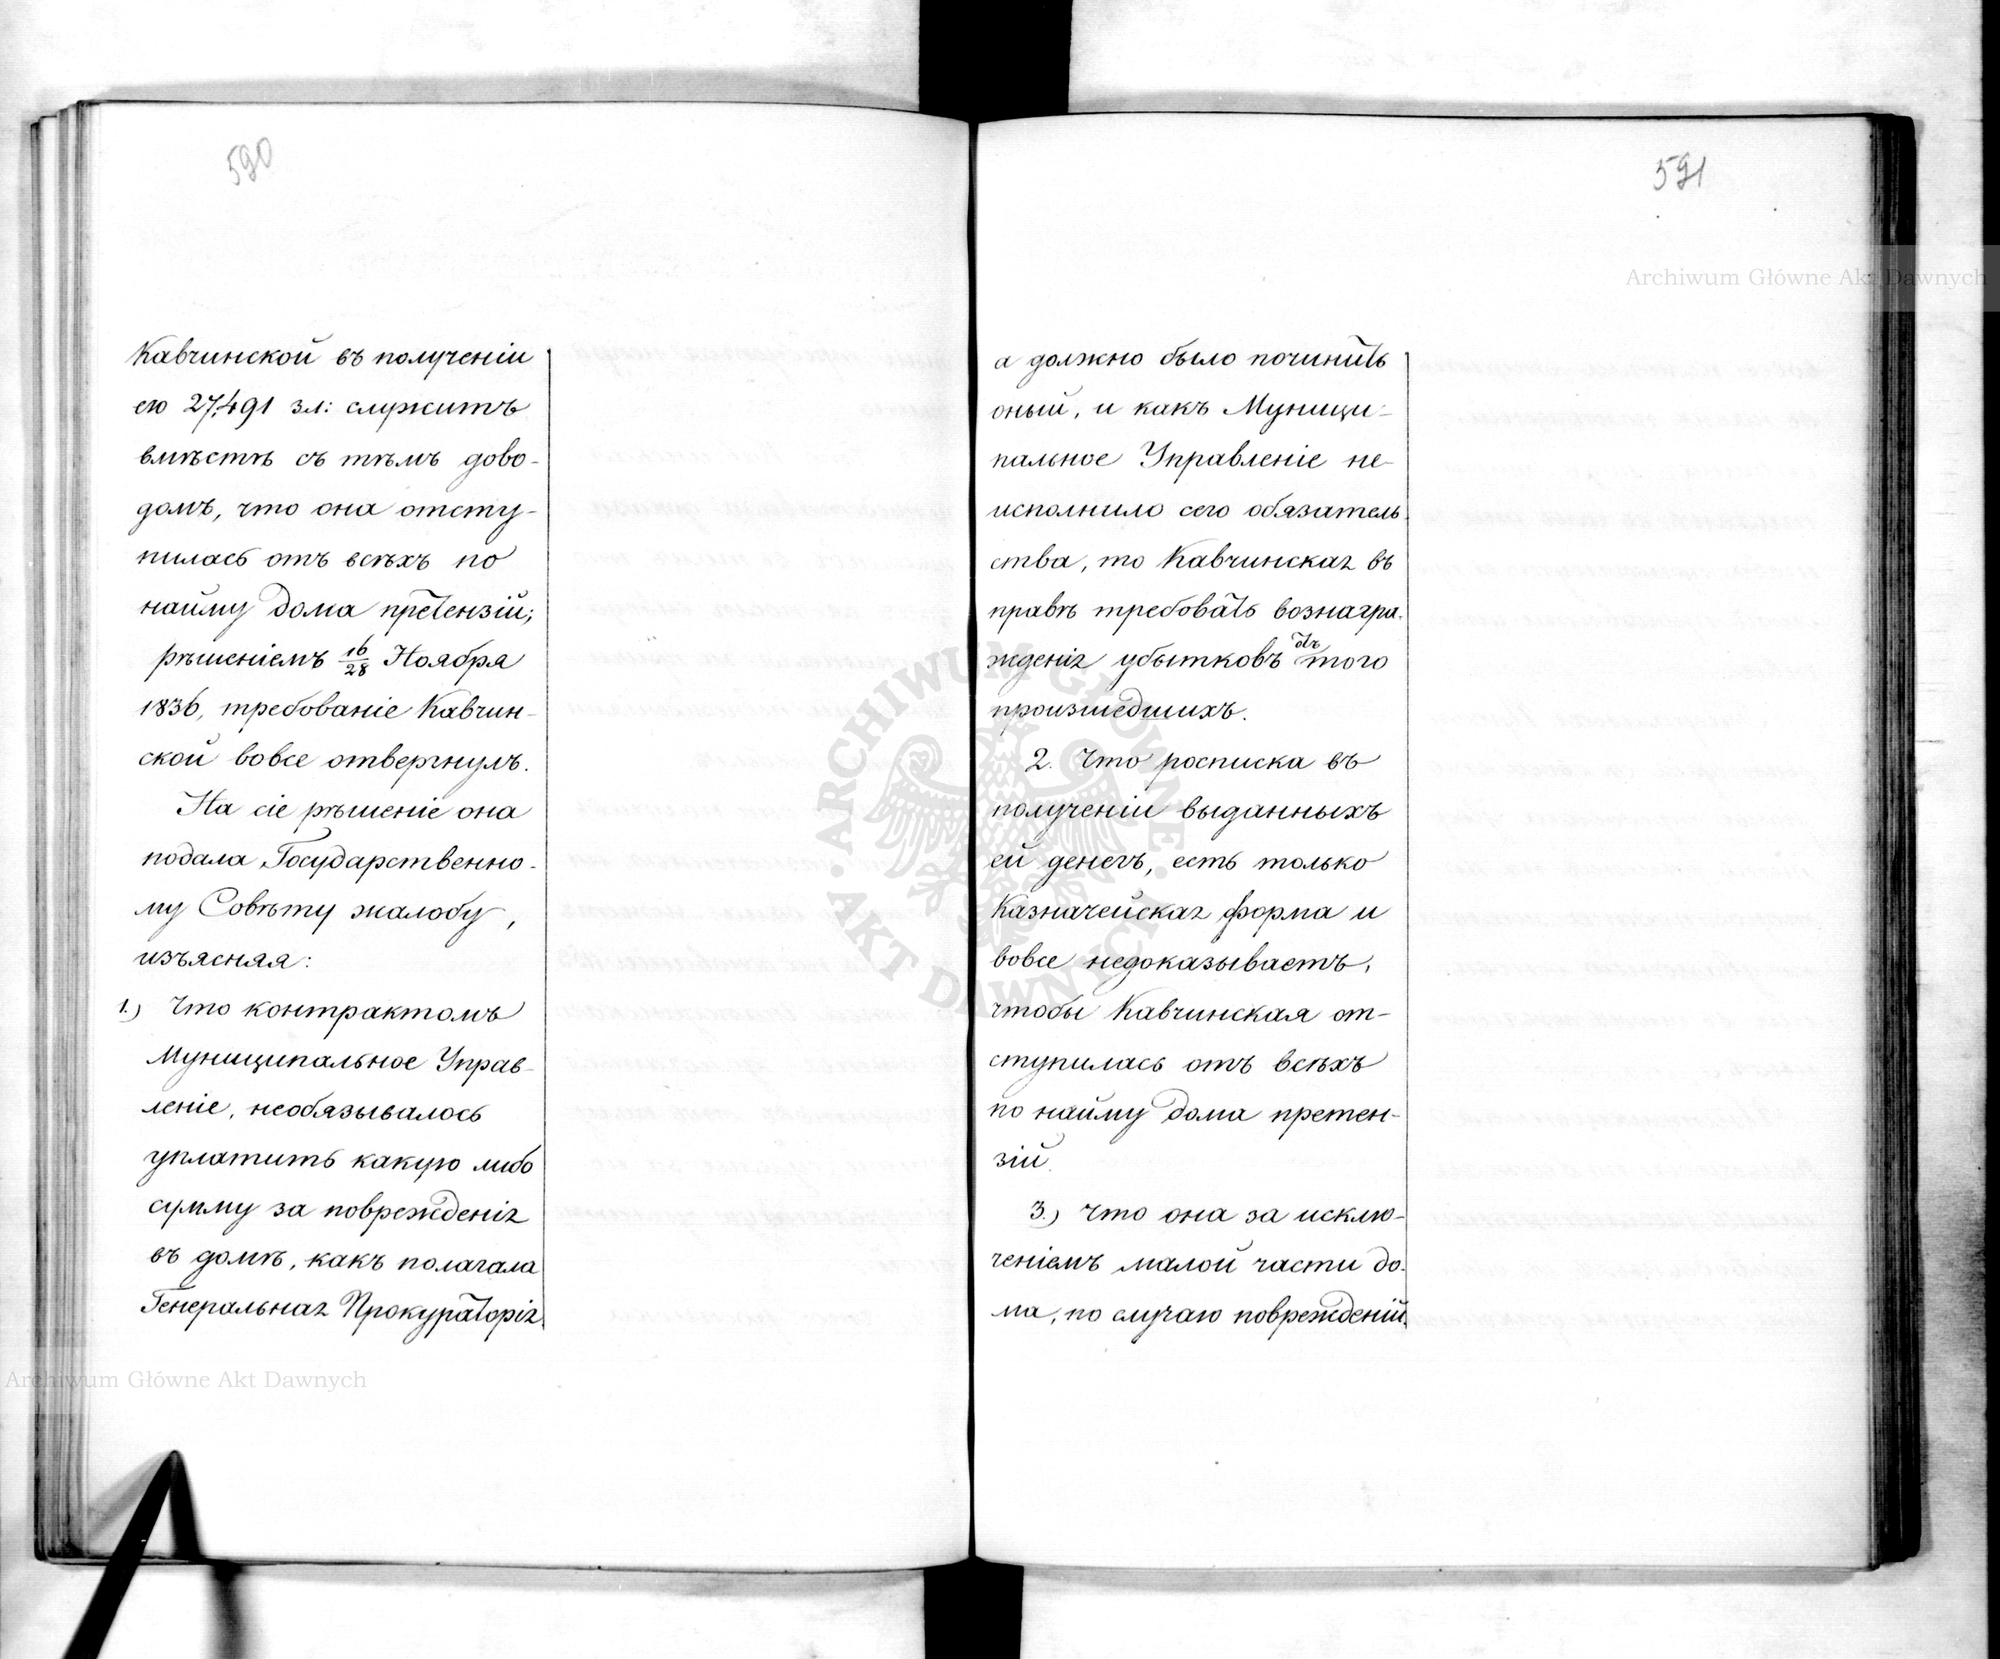 590
Кавчинской въ полученіи
ею 27,491 зл: служитъ
вмѣстѣ съ тѣмъ дово-
домъ, что она отсту-
пилась отъ всѣхъ по
найму дома претензій;
рѣшеніемъ 16/28 Ноября
1836, требованіе Кавчин-
ской вовсе отвергнулъ.
На сіе рѣшеніе она
подала Государственно-
му Совѣту жалобу,
изъясняя:
1.) Что контрактомъ
Муниципальное Управ-
леніе, необязывалось
уплатить какую либо
сумму за поврежденія
въ домѣ, какъ полагала
Генеральная Прокураторія
591
а должно было починить
оный, и какъ Муници-
пальное Управленіе не-
исполнило сего обязатель-
ства, то Кавчинская въ
правѣ требовать вознагра-
жденія убытковъ отъ того
происшедшихъ.
2. Что росписка въ
полученіи выданныхъ
ей денегъ, есть только
Казначейская форма и
вовсе недоказываетъ,
чтобы Кавчинская от-
ступилась отъ всѣхъ
по найму дома претен-
зій.
3.) Что она за исклю-
ченіемъ малой части до-
ма, по случаю поврежденій
Archiwum Główne Akt Dawnych
Archiwum Główne Akt Dawnych
· ARCHIWUM GŁÓWNE · AKT DAWNYCH